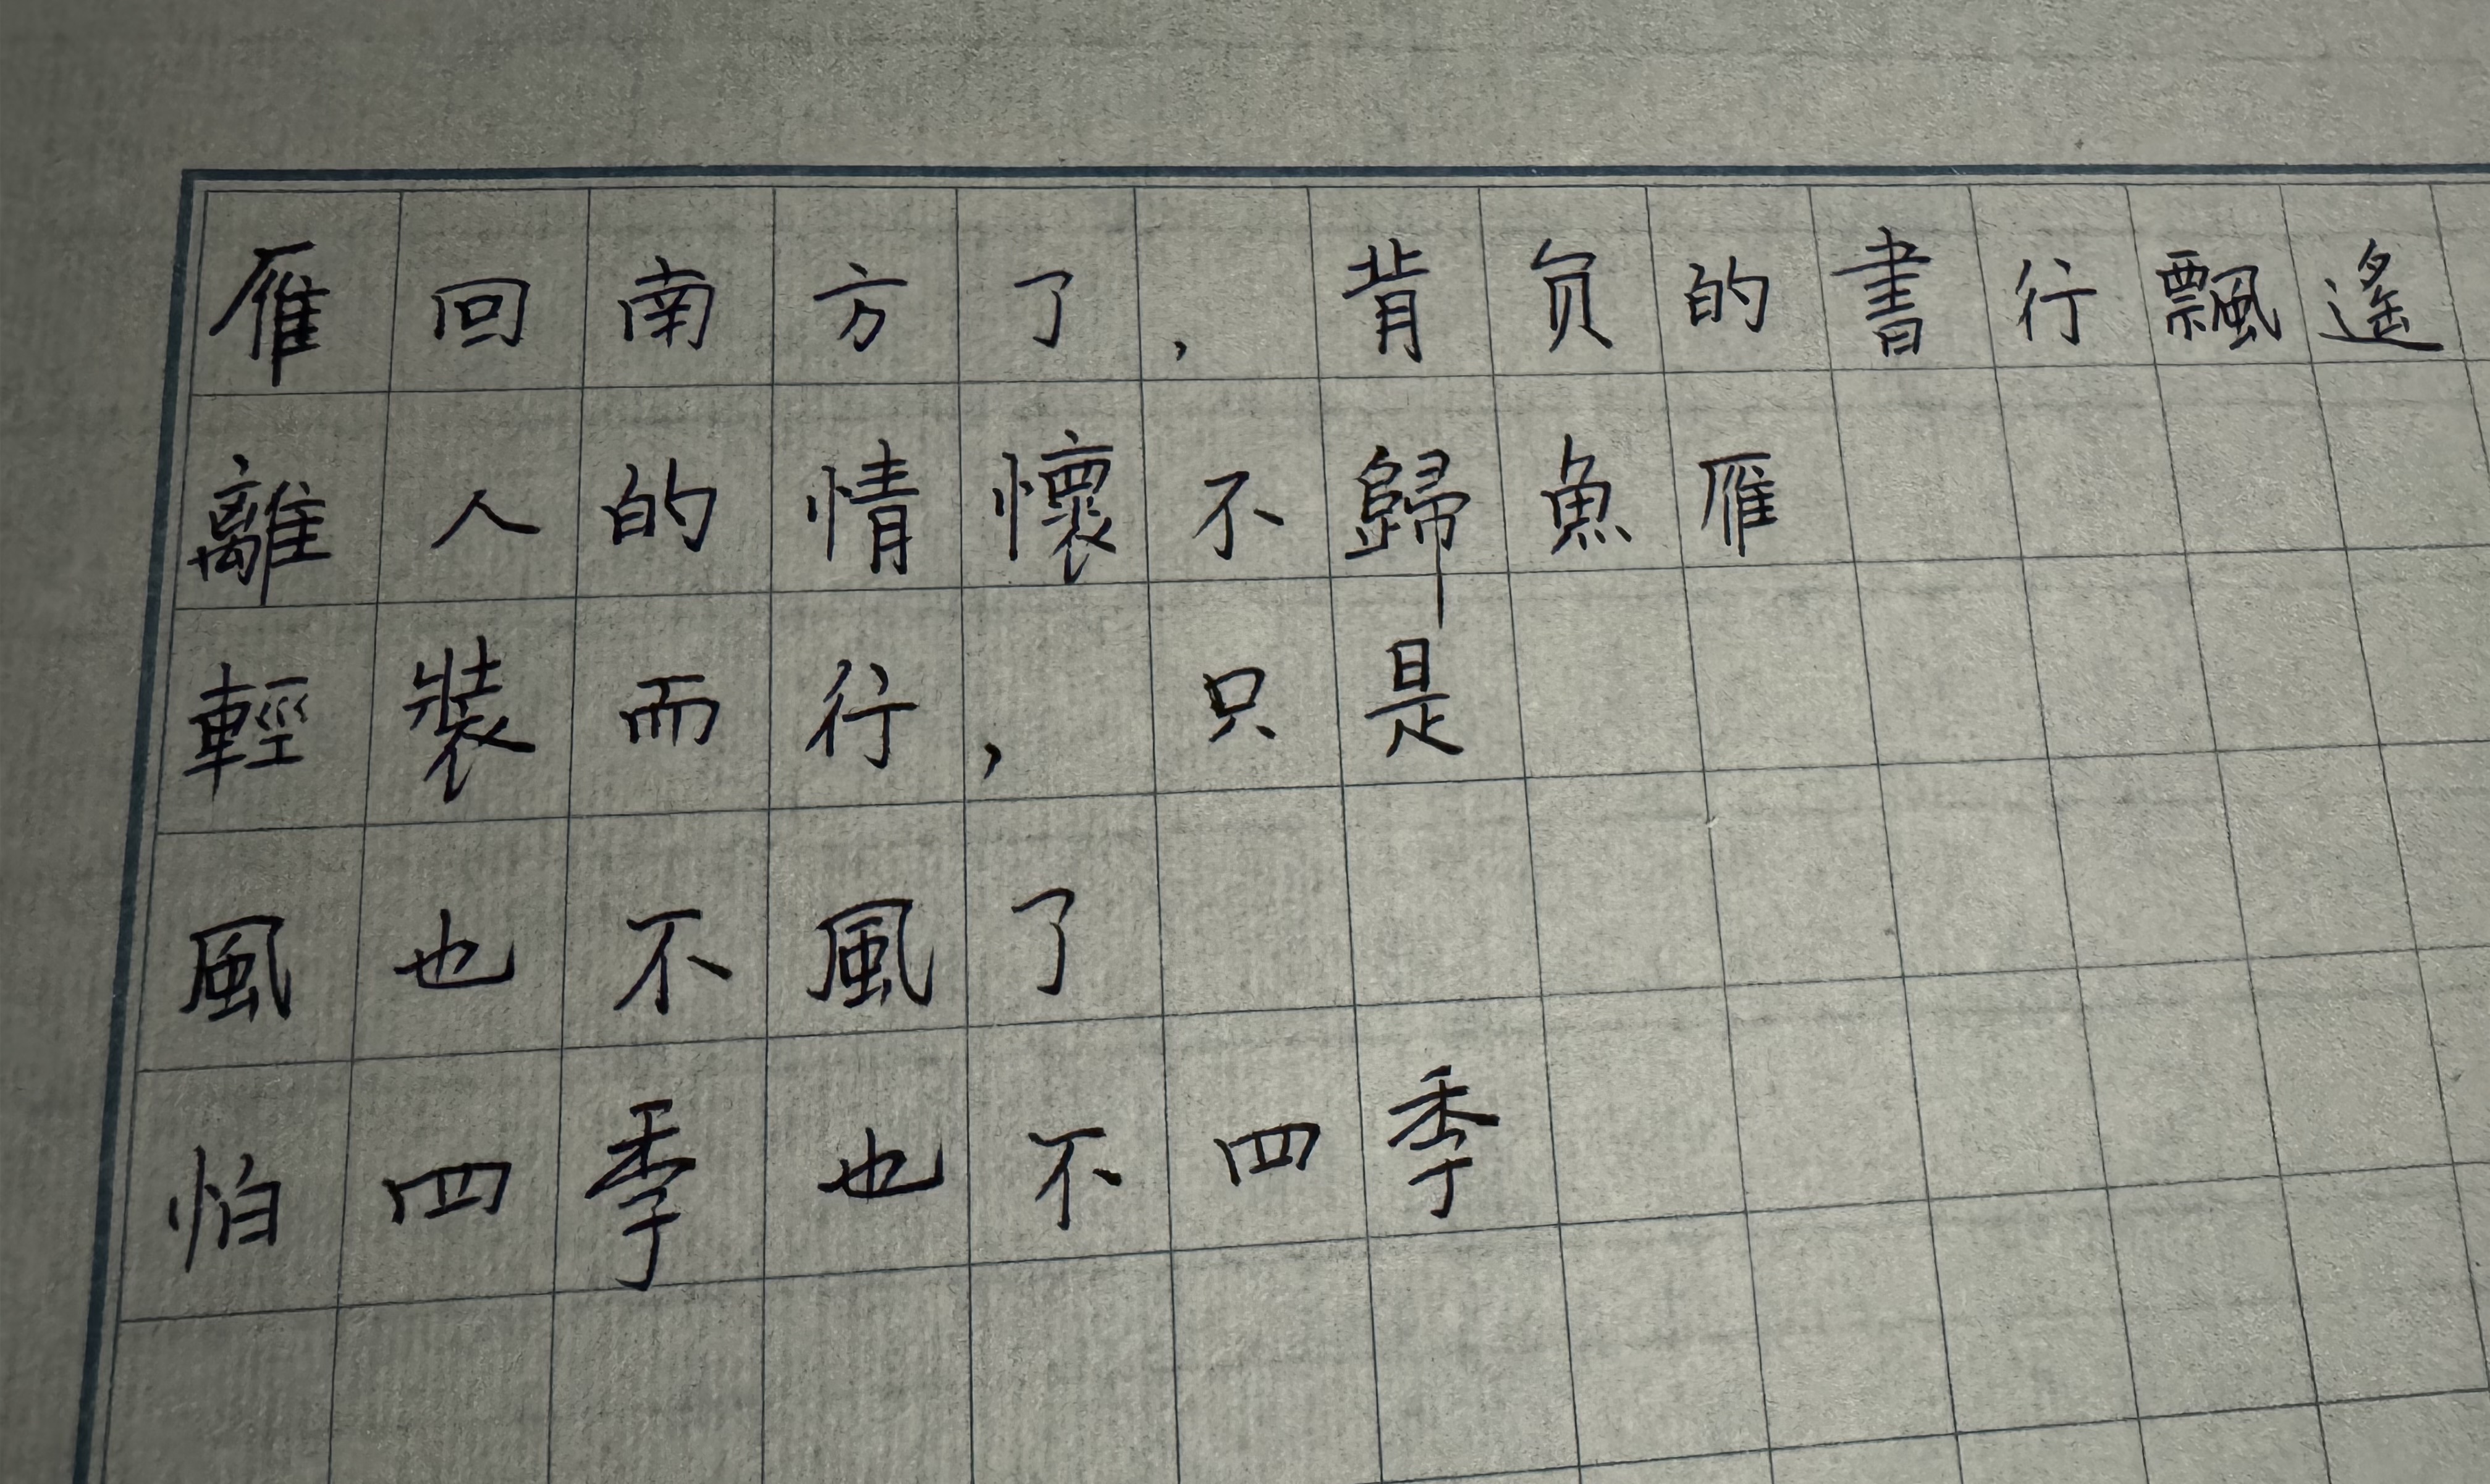 雁回南方了，背负的書行飄遙
離人的情懷不歸魚雁
輕裝而行，只是
風也不風了
怕四季也不四季